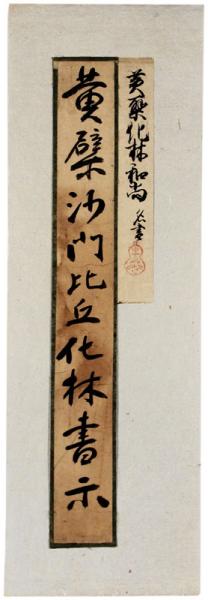 黄檗化林和尚
名書
黄檗沙門比丘化林書示